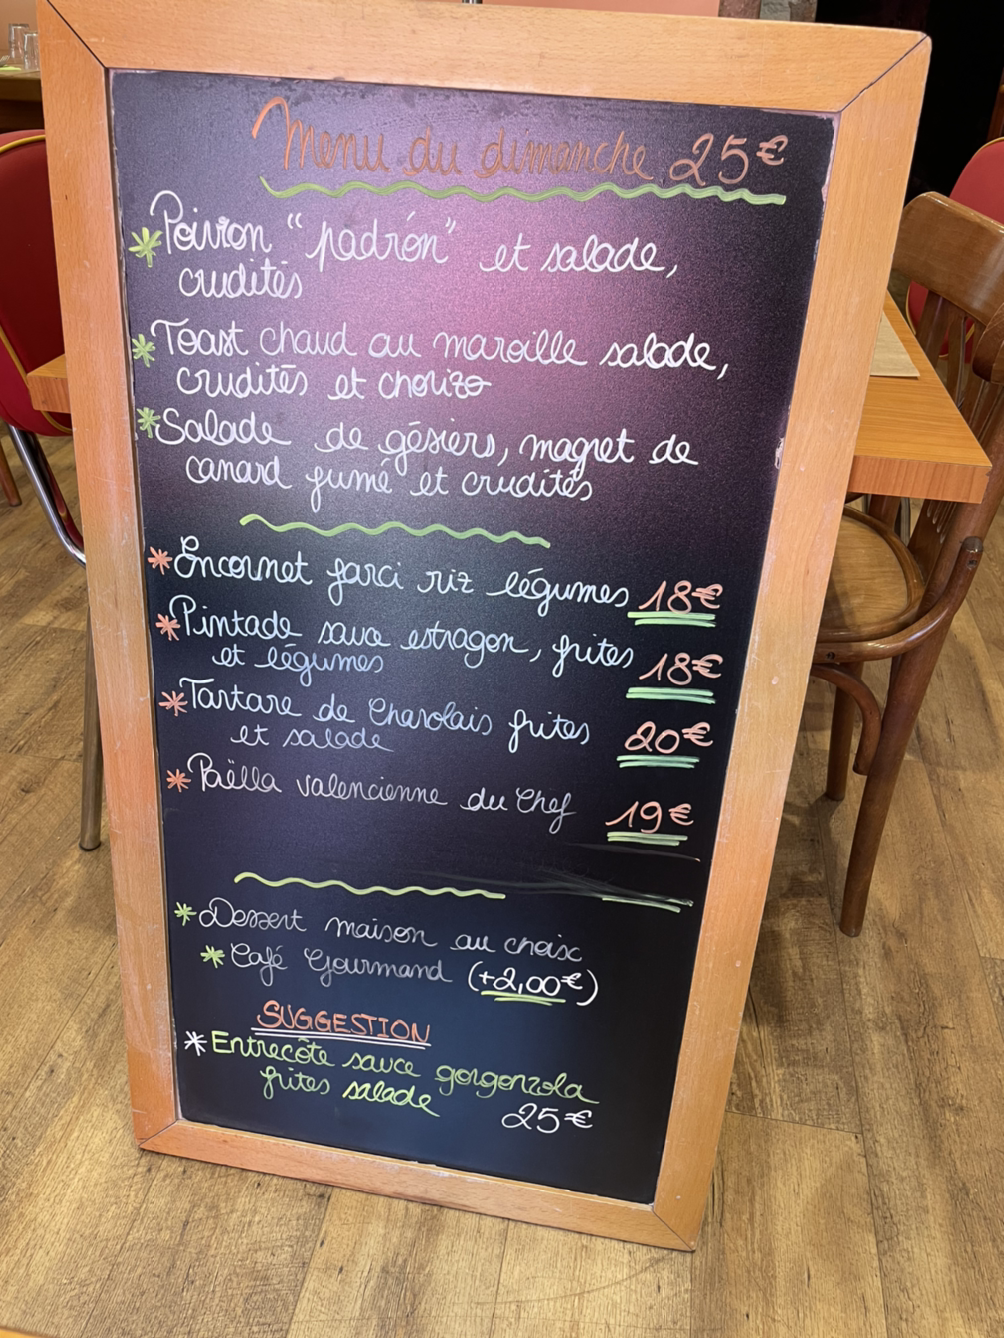 Menu du dimanche 25€
* Poivron "padrón" et salade,
crudités
* Toast chaud au maroille salade,
crudités et chorizo
* Salade de gésiers, magret de
canard fumé et crudités
* Encornet farci riz légumes 18€
* Pintade sauce estragon, frites
et légumes 18€
* Tartare de Charolais frites
et salade 20€
* Paëlla valencienne du Chef 19€
* Dessert maison au choix
* Café Gourmand (+2,00€)
SUGGESTION
* Entrecôte sauce gorgonzola
frites salade
25€